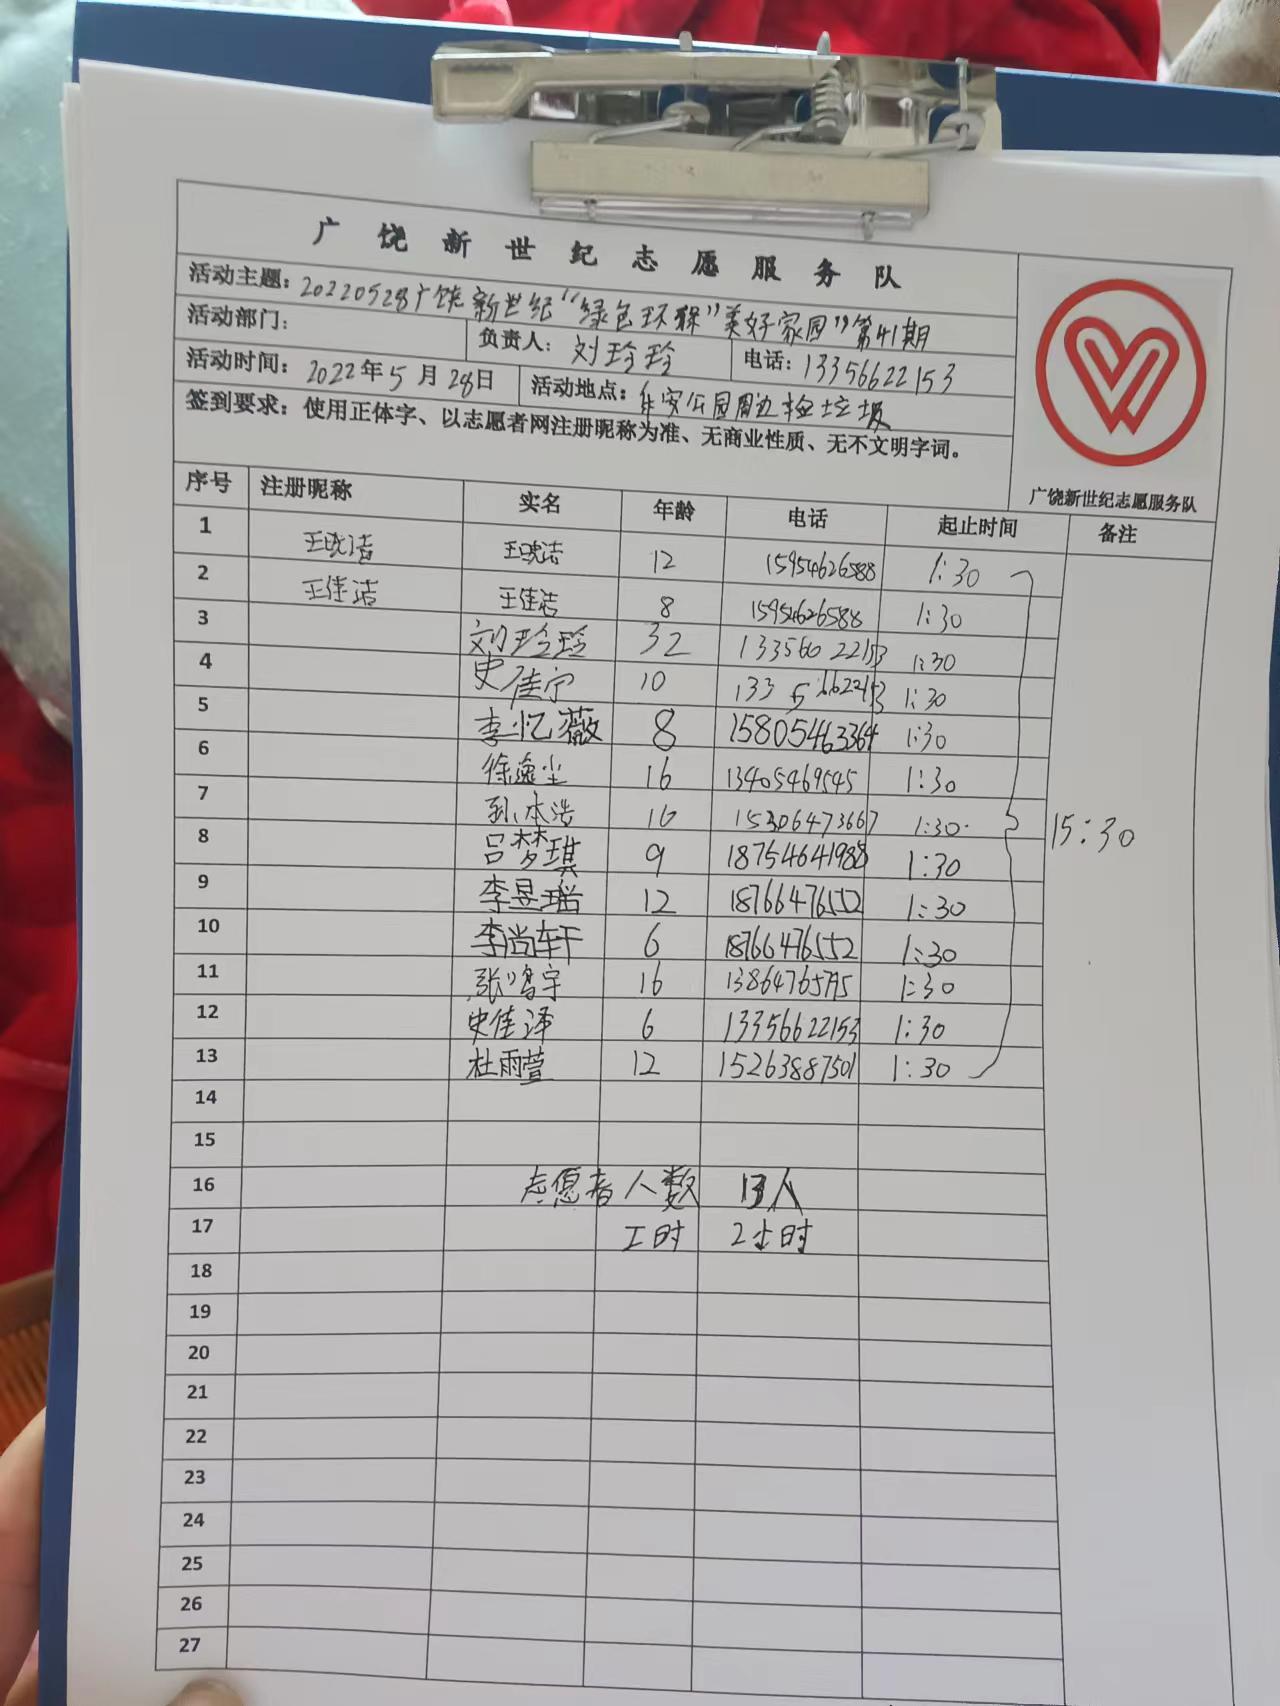 广饶新世纪志愿服务队
活动主题：20220528广饶新世纪“绿色环保”美好家园”第41期
活动部门： 负责人：刘玲玲 电话：13356622153
活动时间：2022年5月28日 活动地点：乐安公园周边捡垃圾
签到要求：使用正体字、以志愿者网注册昵称为准、无商业性质、无不文明字词。
广饶新世纪志愿服务队
序号 注册昵称 实名 年龄 电话 起止时间 备注
1 王晓洁 王晓洁 12 15954626588 1:30
2 王佳洁 王佳洁 8 15954626588 1:30
3 刘玲玲 32 13356622153 1:30
4 史佳宁 10 13356622153 1:30
5 李忆薇 8 15805463364 1:30
6 徐逸尘 16 13405469545 1:30
7 孙本浩 16 15306473667 1:30
15:30
8 吕梦琪 9 18754641988 1:30
9 李昱瑶 12 18766476552 1:30
10 李尚轩 6 18766476552 1:30
11 张鸣宇 16 1:30
12 史佳泽 6 13356622153 1:30
13 杜雨萱 12 15263887501 1:30
14
15
16 志愿者人数 13人
17 工时 2小时
18
19
20
21
22
23
24
25
26
27